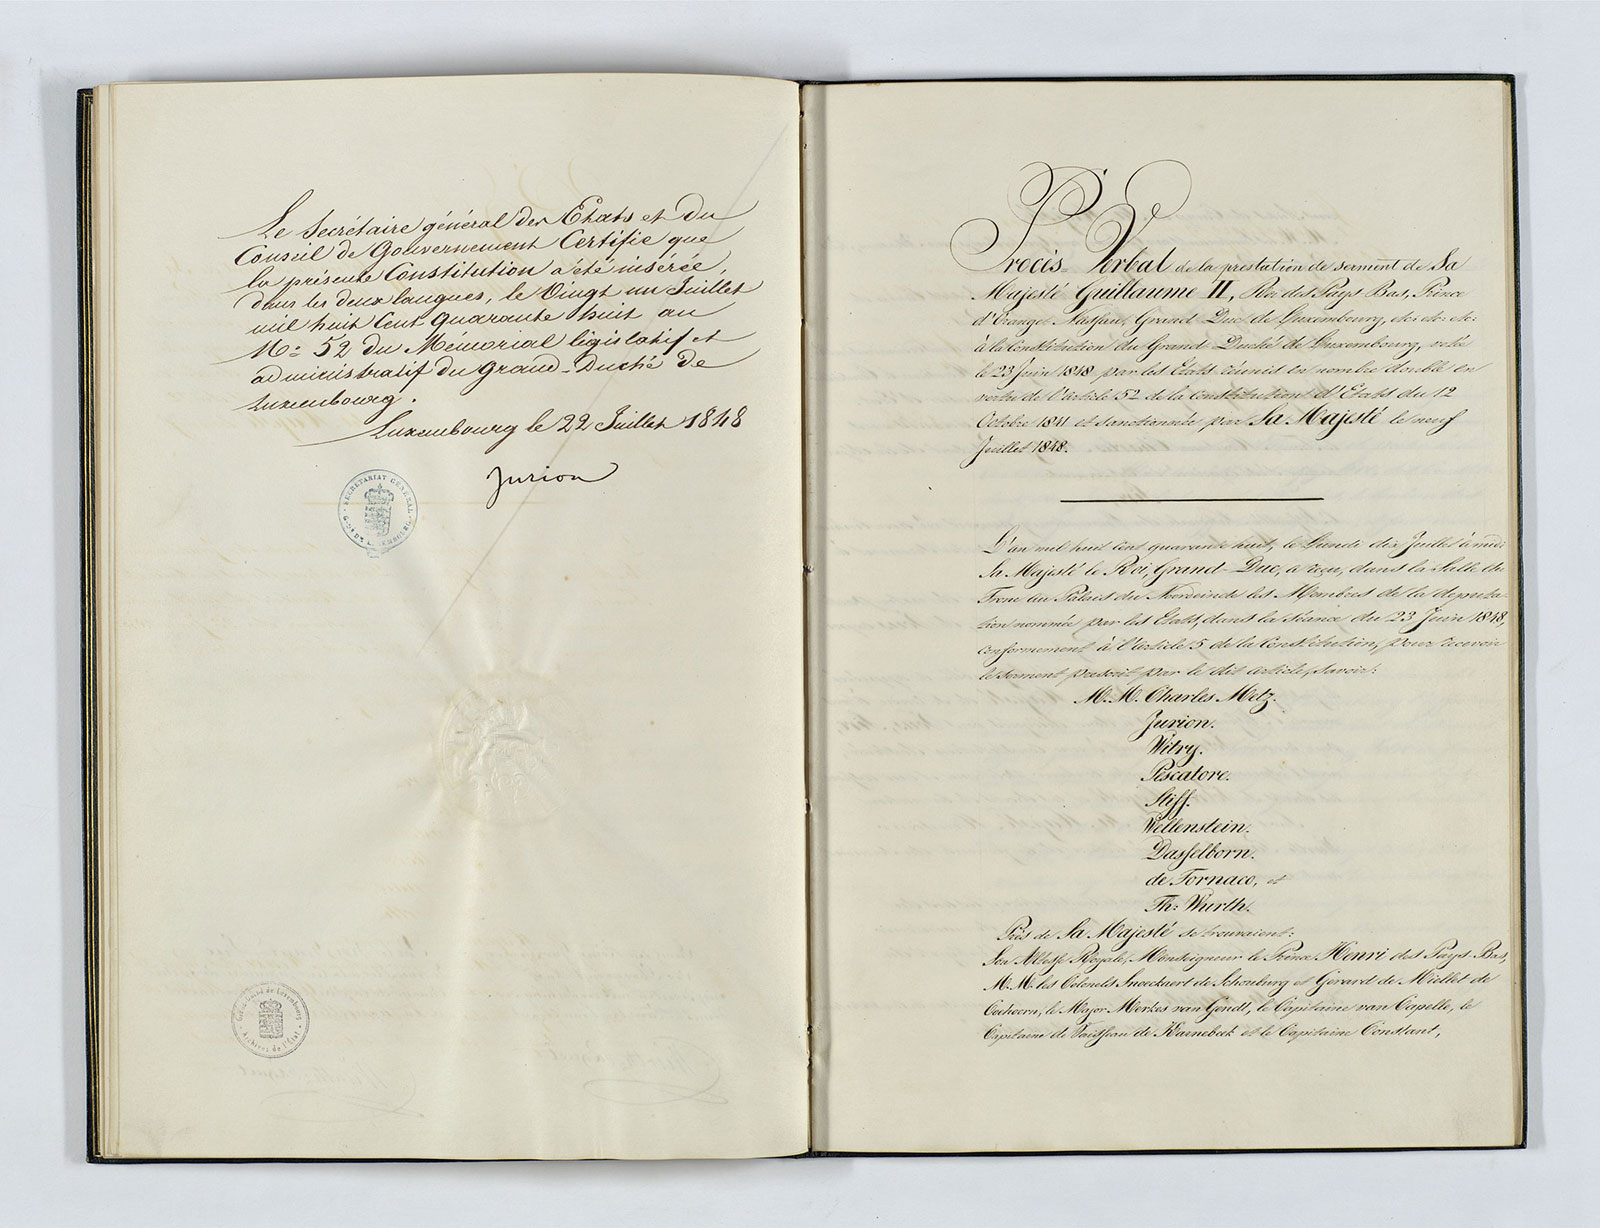 Le Secrétaire général des Etats et du
Conseil de Gouvernement Certifie que
la présente Constitution a été insérée,
dans les deux langues, le Vingt un Juillet
mil huit Cent quarante huit au
No: 52 du Memorial législatif et
administratif du Grand-Duché de
Luxembourg.
Luxembourg le 22 Juillet 1848
Jurion
SECRÉTARIAT GÉNÉRAL
Grand-Duché de Luxembourg
Archives de l'État
Procès-Verbal de la prestation de serment de Sa
Majesté Guillaume II, Roi des Pays-Bas, Prince
d'Orange-Nassau, Grand-Duc de Luxembourg, etc. etc. etc.
à la Constitution du Grand-Duché de Luxembourg, votée
le 23 Juin 1848 par les Etats réunis en nombre double en
vertu de l'article 52 de la Constitution d'Etats du 12
Octobre 1841 et sanctionnée par Sa Majesté le neuf
Juillet 1848.
L'an mil huit cent quarante huit, le Lundi dix Juillet à midi
Sa Majesté le Roi, Grand-Duc, a reçu, dans la Salle du
Trone au Palais du Noordeinde les Membres de la députa-
tion nommée par les Etats, dans la séance du 23 Juin 1848,
conformement à l'Article 5 de la Constitution, pour recevoir
le serment prescrit par le dit article, savoir:
M.M. Charles Metz.
Jurion.
Witry.
Pescatore.
Stiff.
Wellenstein.
Dasselborn.
de Tornaco, et
Th: Wurth.
Près de Sa Majesté se trouvaient:
Son Altesse Royale, Monseigneur le Prince Henri des Pays-Bas,
M.M. les Colonels Snoeckaert de Schouburg et Gerard de Miellet de
Coehoorn, le Major Merkes van Gendt, le Capitaine van Capelle, le
Capitaine de Vaisseau de Karnebeek et le Capitaine Constant,